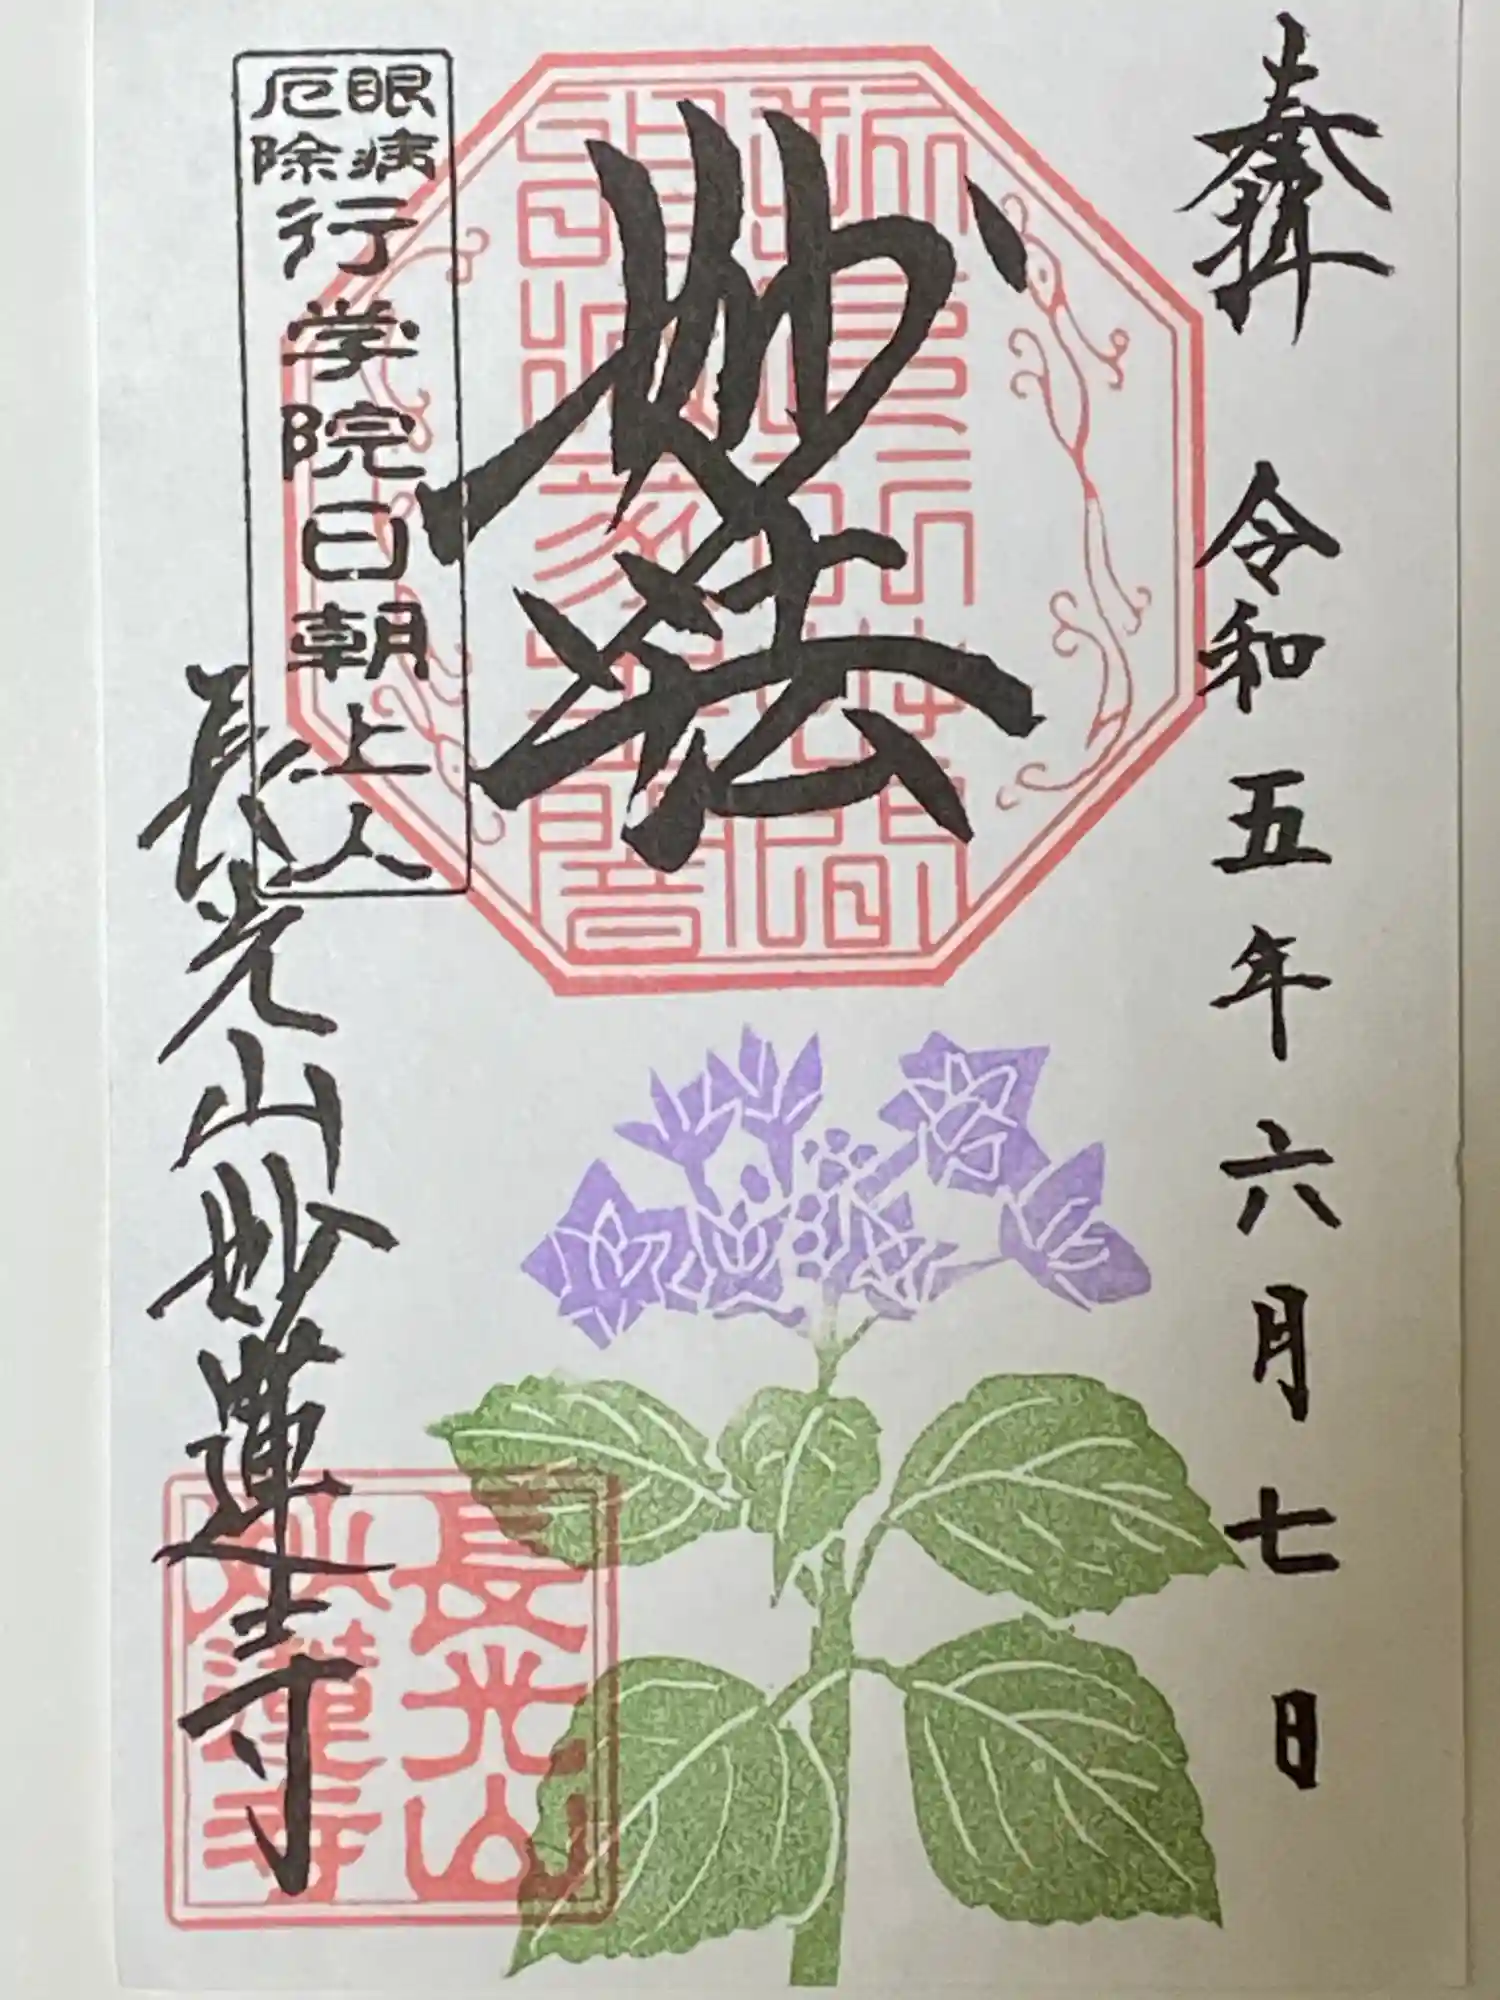 奉拝
令和五年六月七日
妙法
眼病
厄除
行学院日朝上人
長光山妙蓮寺
長光山
妙蓮寺